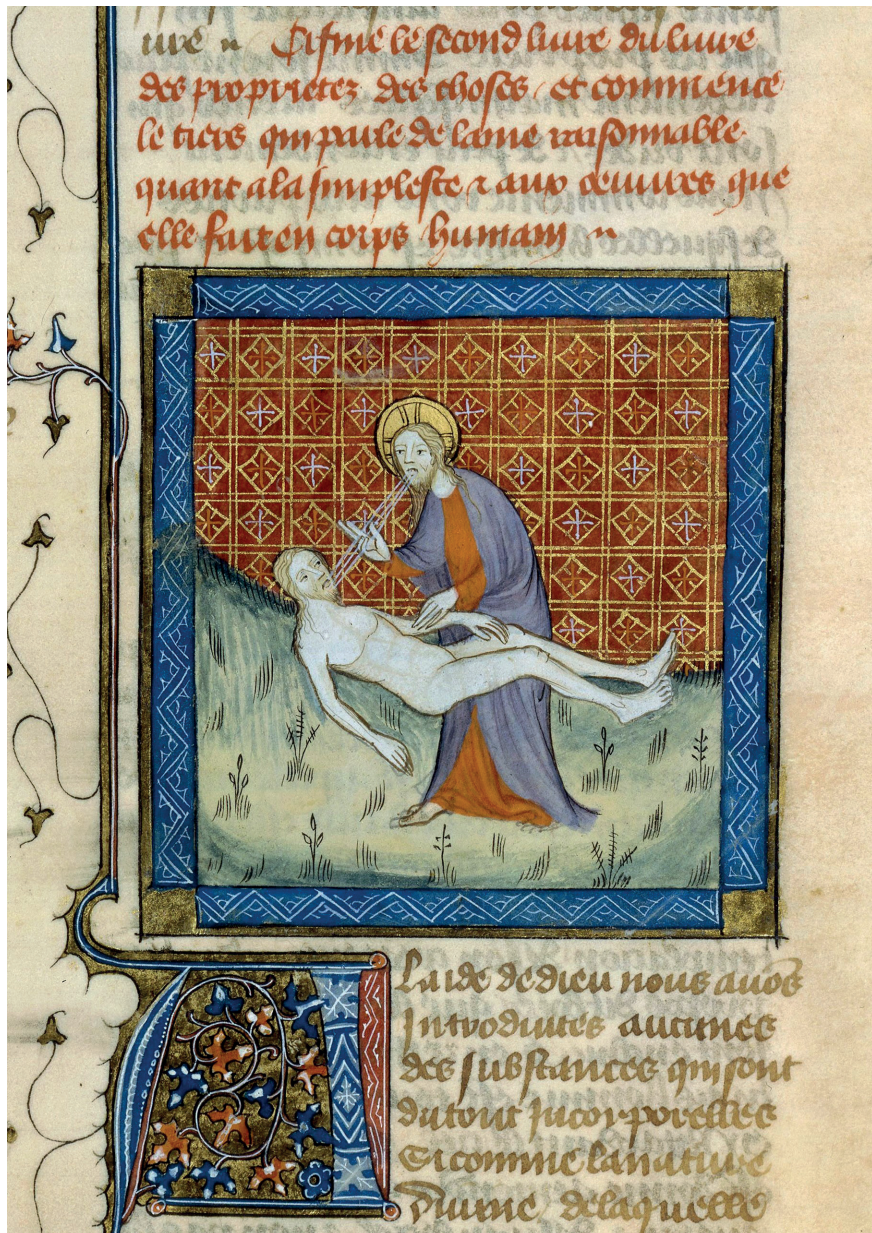 ure Cy fine le second livre du livre
des proprietez des choses et commence
le tiers qui parle de lame raisonnable
quant a la simplesce et aux oeuvres que
elle fait en corps humain
A Laide de dieu nous avons
Introduites aucunes
des substances qui sont
du tout Incorporelles
Si comme la nature
divine de laquelle